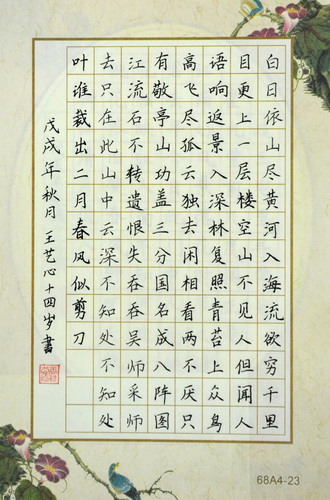 白日依山尽黄河入海流欲穷千里
目更上一层楼空山不见人但闻人
语响返景入深林复照青苔上众鸟
高飞尽孤云独去闲相看两不厌只
有敬亭山功盖三分国名成八阵图
江流石不转遗恨失吞吞吴师采师
去只在此山中云深不知处不知处
叶谁裁出二月春风似剪刀
戊戌年秋月王艺心十四岁書
68A4-23